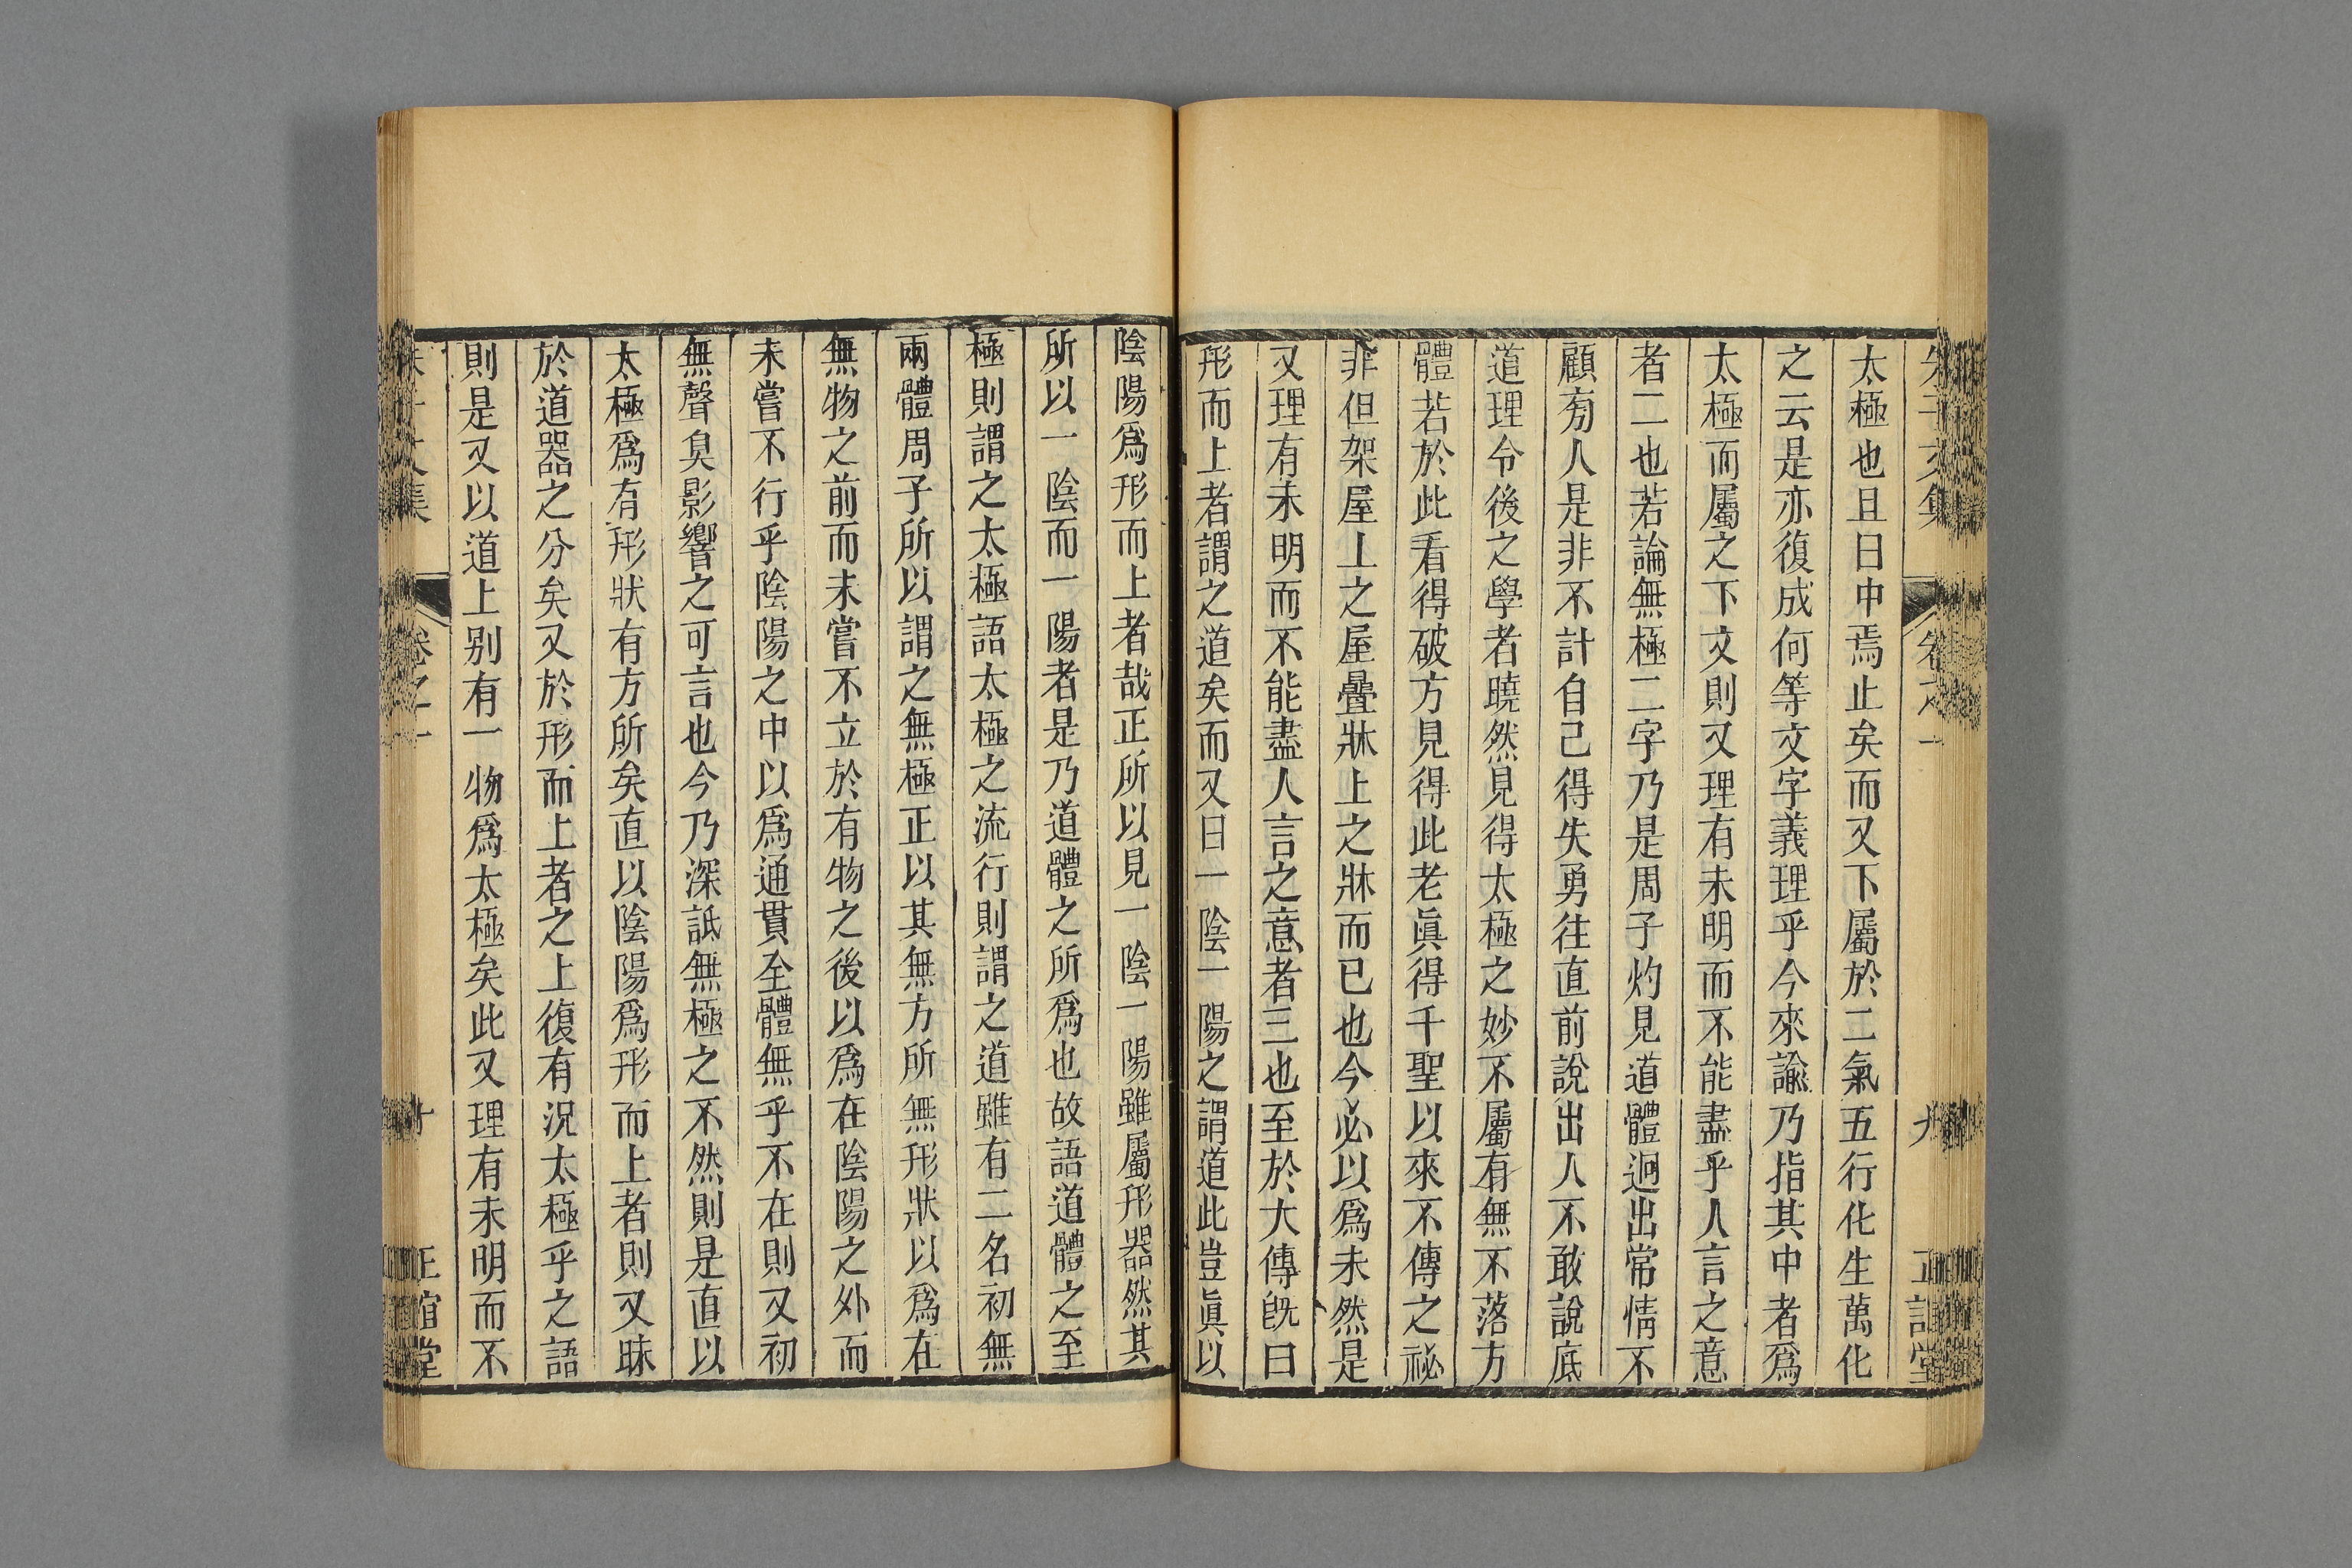 太極也且曰中焉止矣而又下屬於二氣五行化生萬化
之云是亦復成何等文字義理乎今來諭乃指其中者爲
太極而屬之下文則又理有未明而不能盡乎人言之意
者二也若論無極二字乃是周子灼見道體迥出常情不
顧旁人是非不計自己得失勇往直前說出人不敢說底
道理令後之學者曉然見得太極之妙不屬有無不落方
體若於此看得破方見得此老眞得千聖以來不傳之祕
非但架屋上之屋疊牀上之牀而已也今必以爲未然是
又理有未明而不能盡人言之意者三也至於大傳旣曰
形而上者謂之道矣而又曰一陰一陽之謂道此豈眞以
陰陽爲形而上者哉正所以見一陰一陽雖屬形器然其
所以一陰而一陽者是乃道體之所爲也故語道體之至
極則謂之太極語太極之流行則謂之道雖有二名初無
兩體周子所以謂之無極正以其無方所無形狀以爲在
無物之前而未嘗不立於有物之後以爲在陰陽之外而
未嘗不行乎陰陽之中以爲通貫全體無乎不在則又初
無聲臭影響之可言也今乃深詆無極之不然則是直以
太極爲有形狀有方所矣直以陰陽爲形而上者則又昧
於道器之分矣又於形而上者之上復有況太極乎之語
則是又以道上别有一物爲太極矣此又理有未明而不
集
卷之一
十
堂